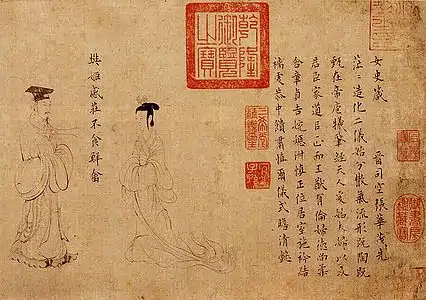 女史箴　晉司空張華茂先
茫〻造化二儀始分散氣流形既陶既
甄在帝庖犧肇經天人爰始夫婦以及
君臣家道以正而王猷有倫婦德尚柔
含章貞吉婉嫕淑慎正位居室施衿結
褵虔恭中饋肅慎爾儀式瞻清懿
三希堂精鑑璽
宜子孫
乾隆御覽之寶
樊姬感莊不食鮮禽